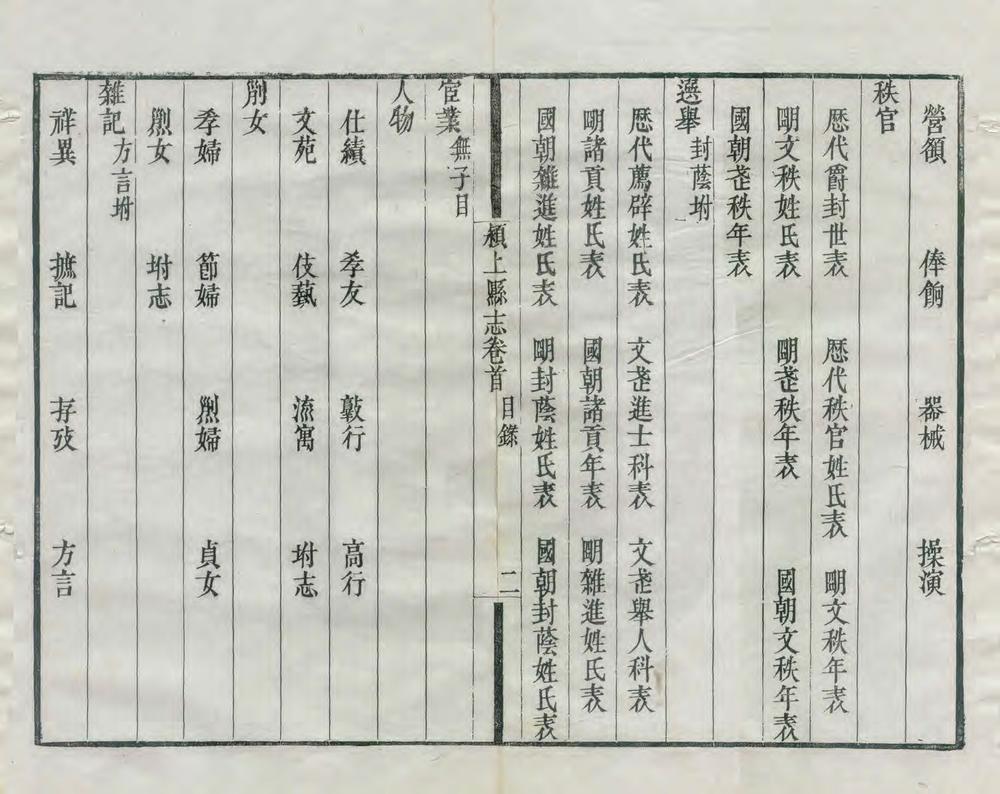 營額　俸餉　器械　操演
秩官
歷代爵封世表　歷代秩官姓氏表　明文秩年表
明文秩姓氏表　明武秩年表　國朝文秩年表
國朝武秩年表
選舉 封蔭坿
歷代薦辟姓氏表　文武進士科表　文武舉人科表
明諸貢姓氏表　國朝諸貢年表　明雜進姓氏表
國朝雜進姓氏表　明封蔭姓氏表　國朝封蔭姓氏表
潁上縣志卷首　目錄　二
宦業 無子目
人物
仕績　孝友　敦行　高行
文苑　伎藝　流寓　坿志
列女
孝婦　節婦　烈婦　貞女
烈女　坿志
雜記 方言坿
祥異　摭記　存攷　方言